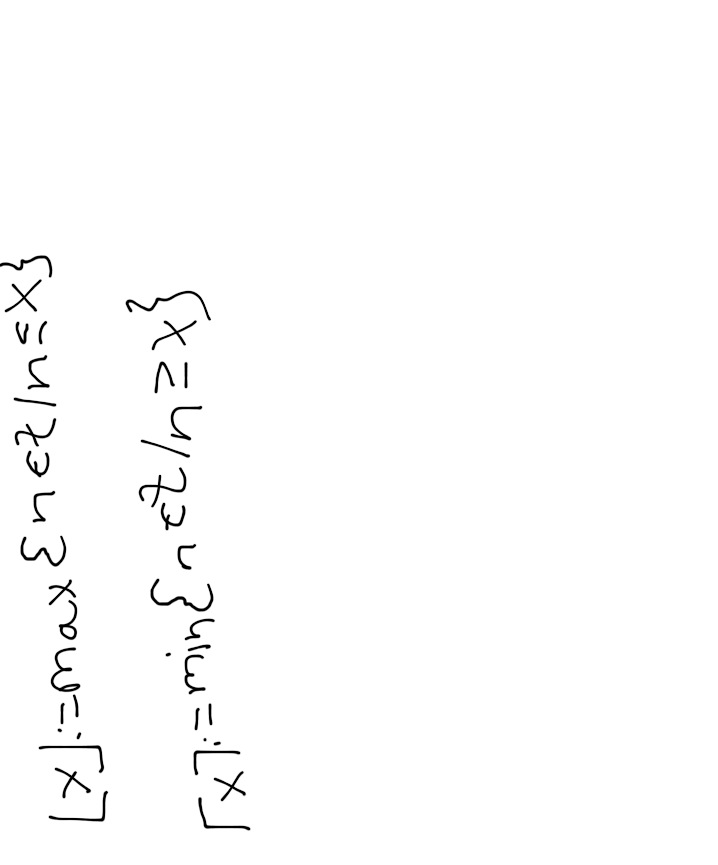 ⌊x⌋ := max{n∈ℤ/n≤x}
⌈x⌉ := min{n∈ℤ/n≥x}